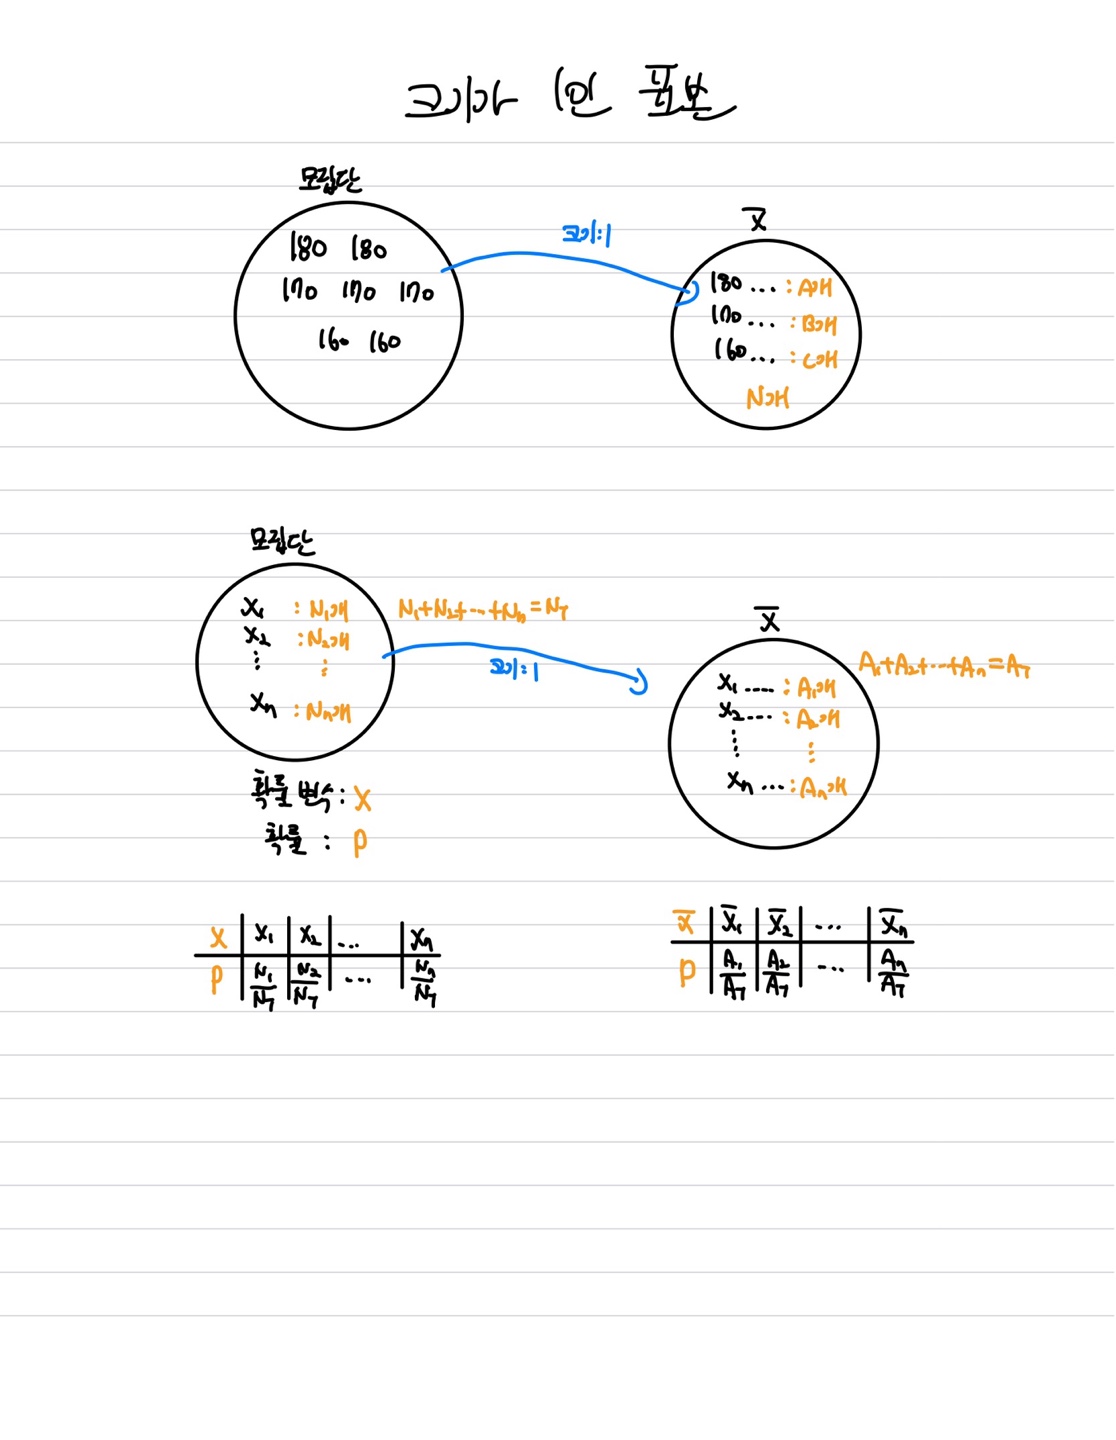 크기가 1인 표본
모집단
180 180
170 170 170
160 160
크기:1
X̅
180 ... : A개
170 ... : B개
160 ... : C개
N개
모집단
x₁ : N₁개
x₂ : N₂개
⋮ ⋮
xₙ : Nₙ개
N₁+N₂+⋯+Nₙ=N_T
크기:1
확률 변수: X
확률 : P
X̅
A₁+A₂+⋯+Aₙ=A_T
x₁ ..... : A₁개
x₂ .... : A₂개
⋮ ⋮
xₙ ... : Aₙ개
X x₁ x₂ ... xₙ
P N₁/N_T N₂/N_T ... Nₙ/N_T
X̅ X̅₁ X̅₂ ... X̅ₙ
P A₁/A_T A₂/A_T ... Aₙ/A_T